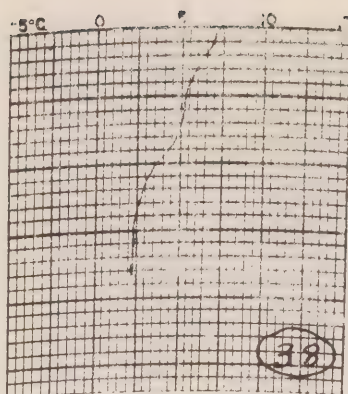 -5°C 0 5 10
38